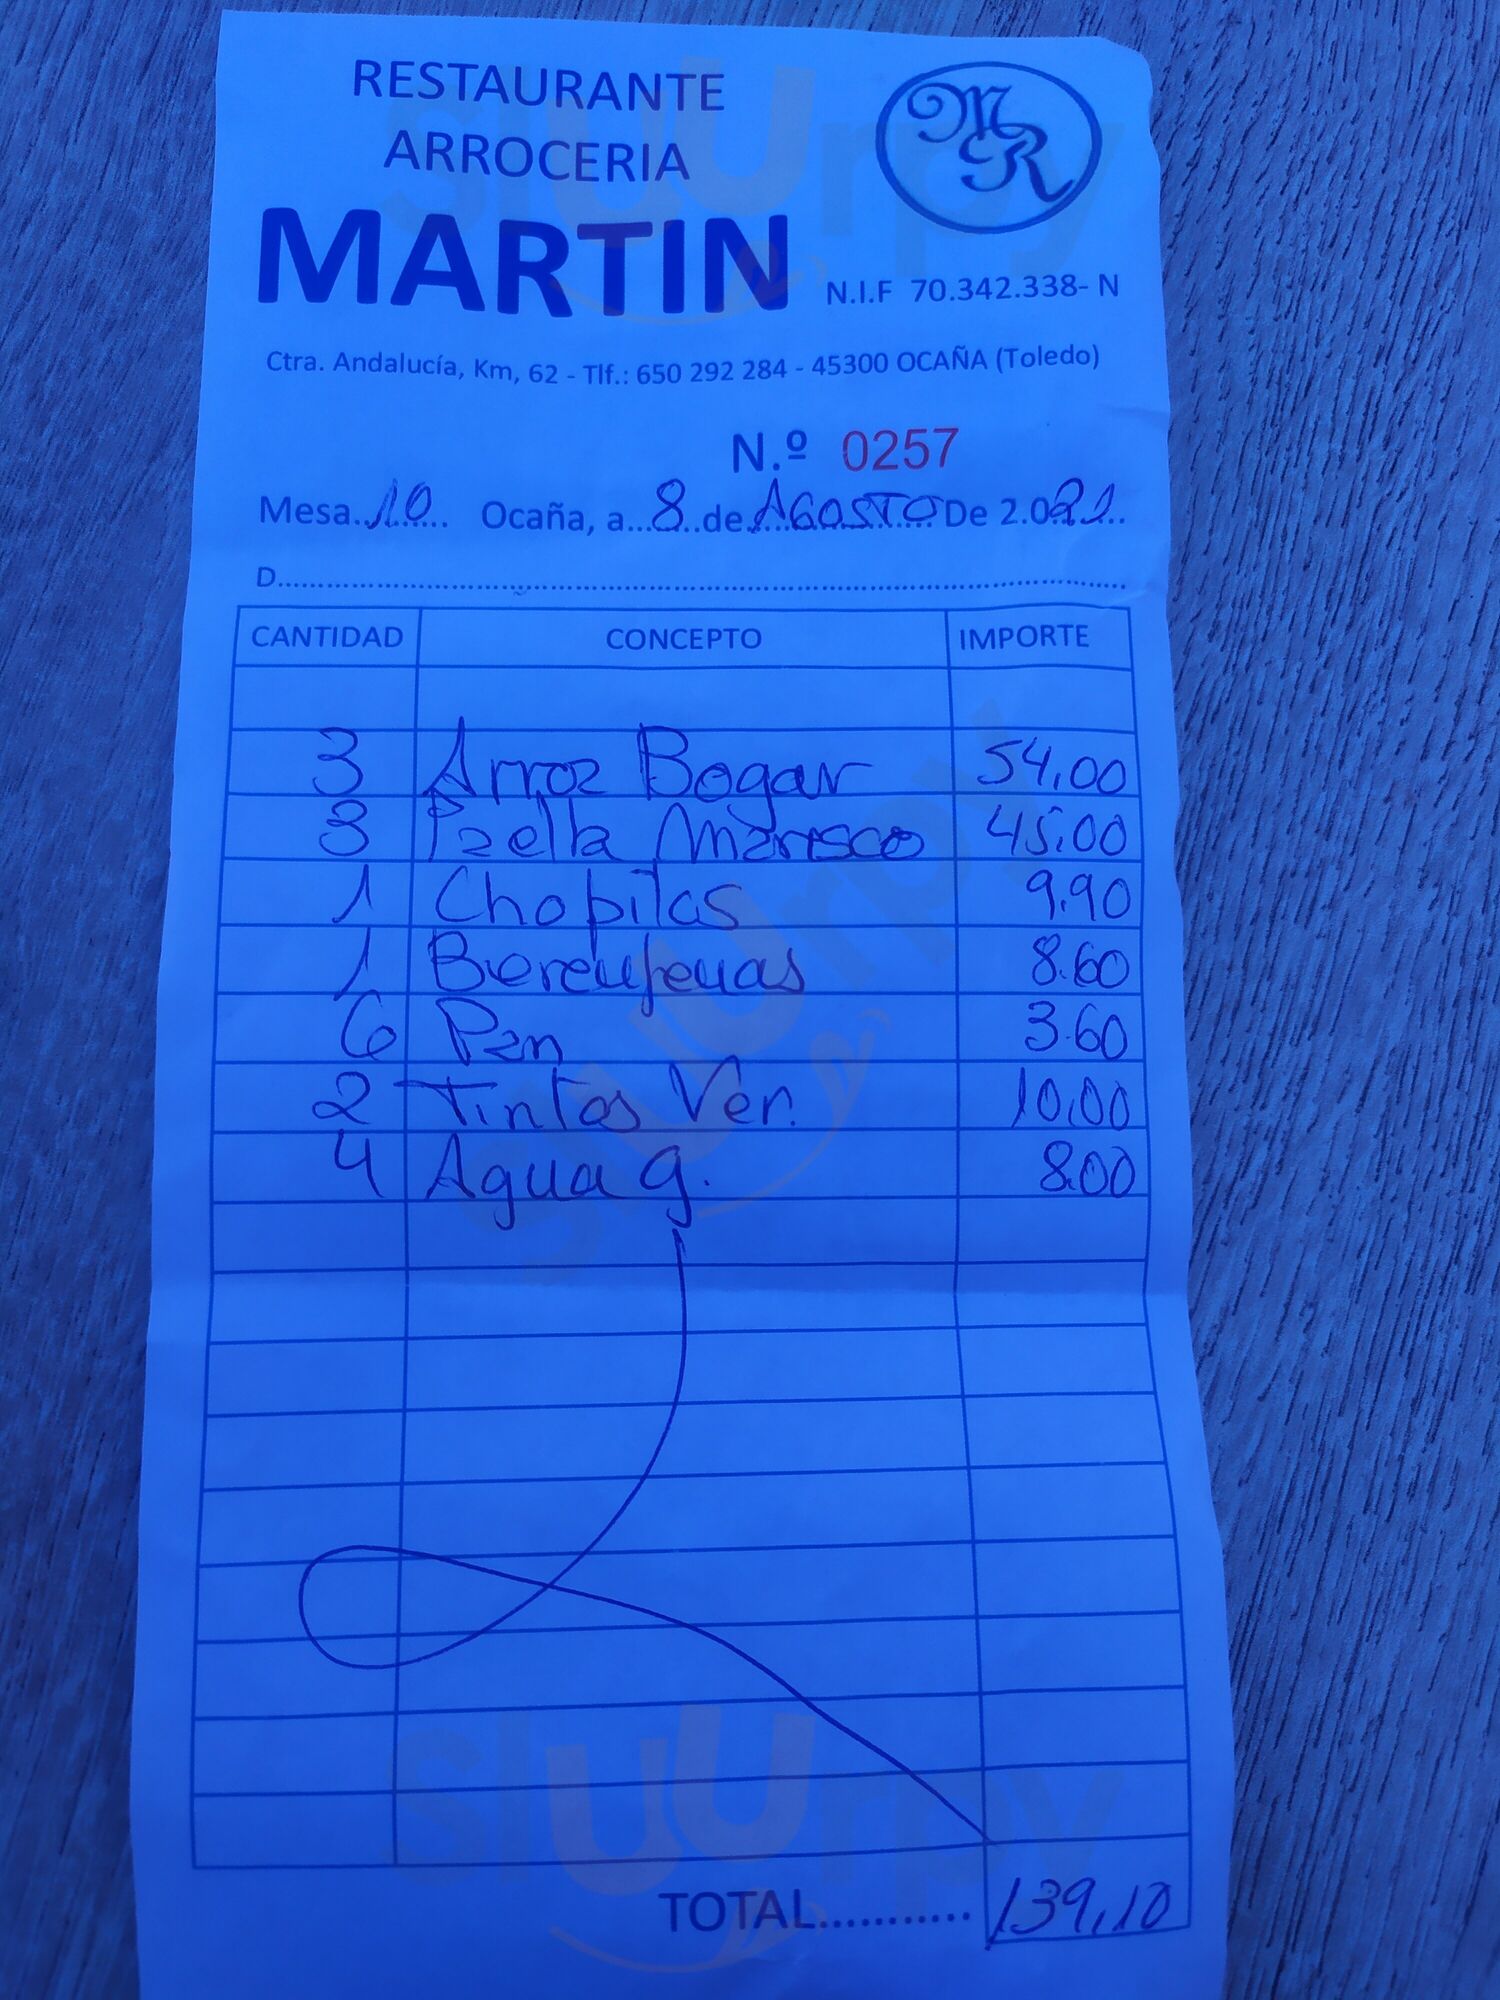 RESTAURANTE
ARROCERIA
MARTIN
MR
N.I.F 70.342.338- N
Ctra. Andalucía, Km, 62 - Tlf.: 650 292 284 - 45300 OCAÑA (Toledo)
N.º 0257
Mesa..10..... Ocaña, a...8..de.AGOSTO.De 2.021....
D....................................................................
CANTIDAD CONCEPTO IMPORTE
3 Arroz Bogar 54,00
3 Paella Marisco 45,00
1 Chopitos 9.90
1 Berenjenas 8.60
6 Pan 3.60
2 Tintos Ver. 10,00
4 Agua g. 8.00
TOTAL........... 139,10
sluurpy
sluurpy
sluurpy